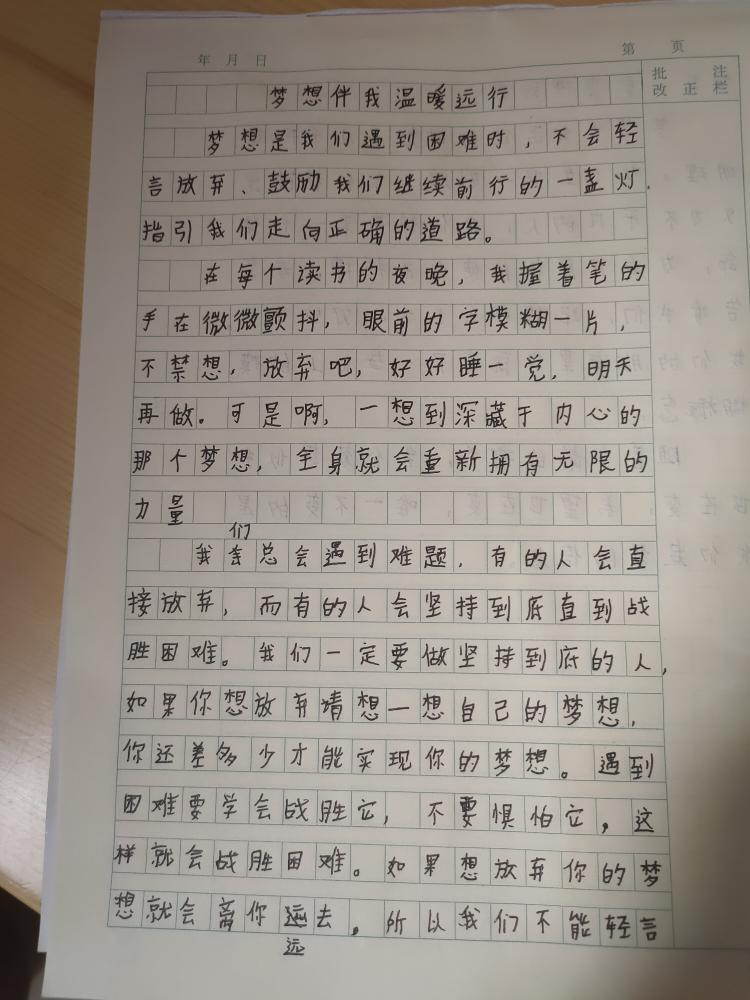 年 月 日
第 页
批 注
改 正 栏
梦想伴我温暖远行
梦想是我们遇到困难时，不会轻
言放弃、鼓励我们继续前行的一盏灯.
指引我们走向正确的道路。
在每个读书的夜晚，我握着笔的
手在微微颤抖，眼前的字模糊一片，
不禁想，放弃吧，好好睡一觉，明天
再做。可是啊，一想到深藏于内心的
那个梦想，全身就会重新拥有无限的
力量
们
我 总会遇到难题．有的人会直
接放弃，而有的人会坚持到底直到战
胜困难。我们一定要做坚持到底的人，
如果你想放弃请想一想自己的梦想，
你还差多少才能实现你的梦想。遇到
困难要学会战胜它，不要惧怕它，这
样就会战胜困难。如果想放弃你的梦
想就会离你 去。所以我们不能轻言
远